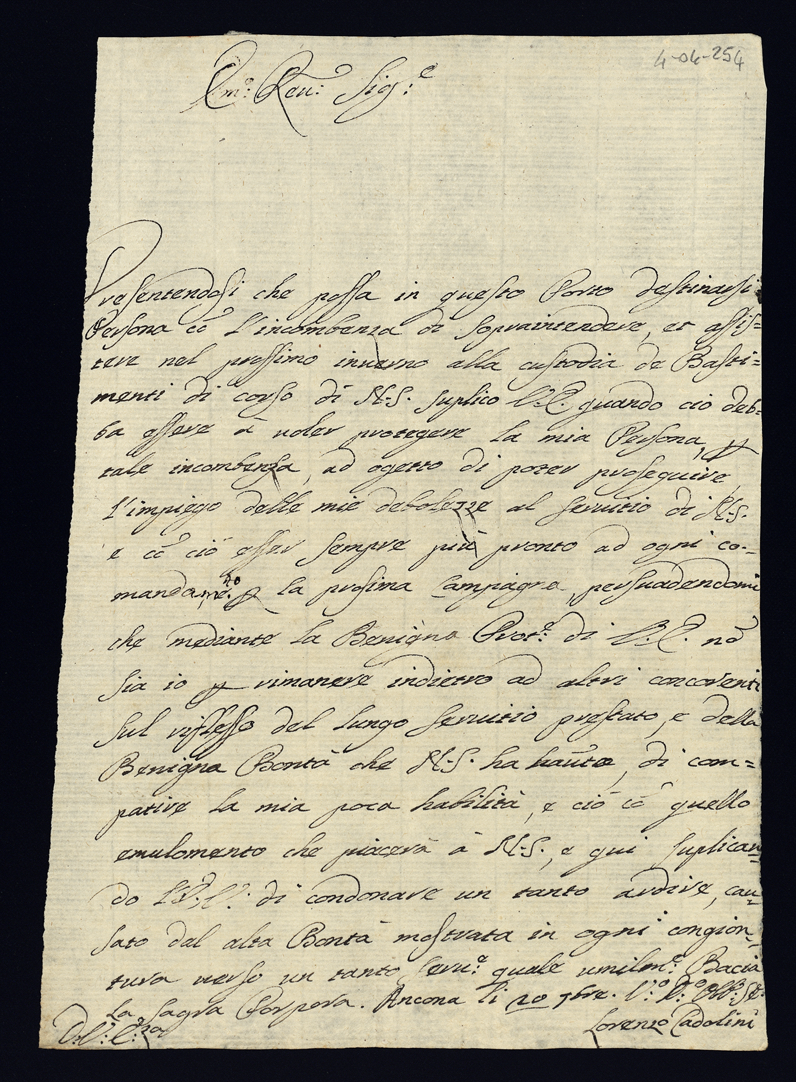 4-04-254
Em:o Reu:o Sig:e
Presentendosi che possa in questo Porto destinarsi
Persona cõ l'incombenza di sopraintendere, et assis=
tere nel prossimo inuerno alla custodia de Basti=
menti di corso di N.S. suplico V.E. quando ciò deb=
ba essere à uoler protegere la mia Persona, p
tale incombenza, ad ogetto di poter proseguire
l'impiego delle mie debolezze al seruitio di N.S.
e cõ ciò esser sempre più pronto ad ogni co=
mandam.to p la prosima Campagna, persuadendomi
che mediante la Benigna Prot:e di V.E. nõ
sia io p rimanere indietro ad altri concorenti
sul riflesso del lungo seruitio prestato, e della
Benigna Bontà che N.S. ha hauto, di com=
patire la mia poca habilità, e ciò cõ quello
emulomento che piacerà à N.S., e qui suplican=
do l'E.V. di condonare un tanto ardire, cau=
sato dal alta Bontà mostrata in ogni congion=
tura uerso un tanto seru:e quale umilm:e Bacia
la Sagra Porpora. Ancona li 20 7bre.
Lorenzo Cadolini